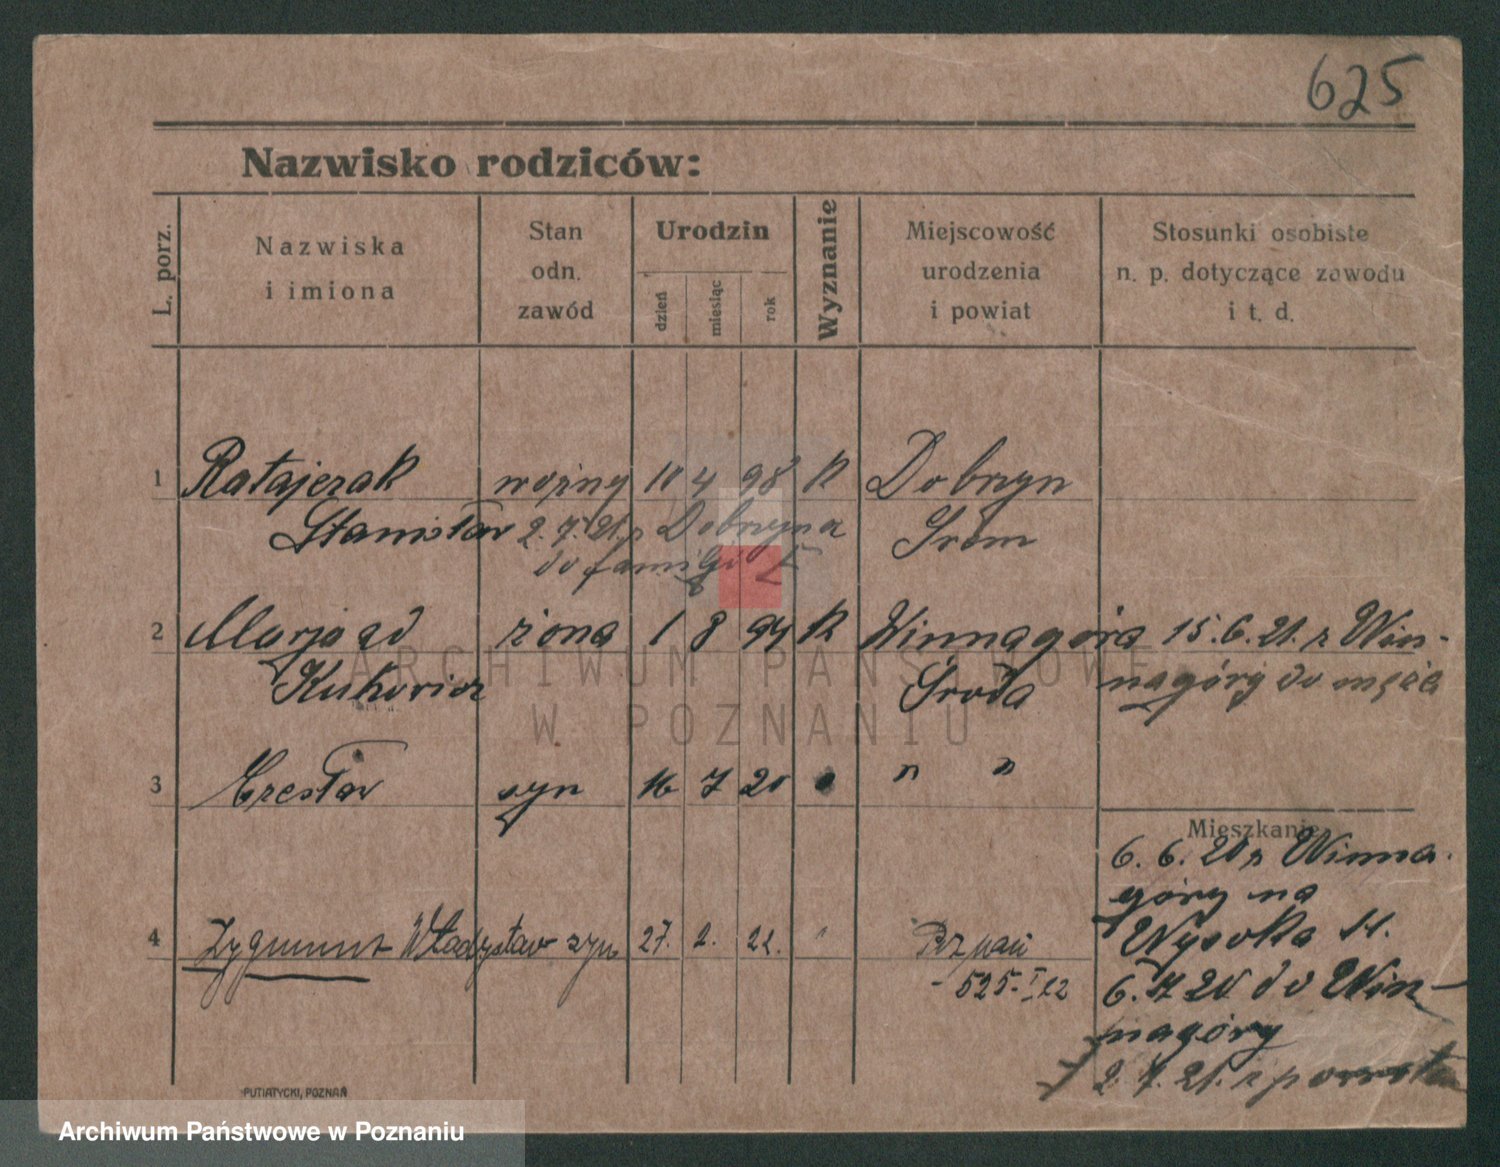 625
Nazwisko rodziców:
L. porz.
Nazwiska
i imiona
Stan
odn.
zawód
Urodzin
dzień
miesiąc
rok
Wyznanie
Miejscowość
urodzenia
i powiat
Stosunki osobiste
n. p. dotyczące zawodu
i t. d.
1 Ratajczak woźny 10 4 98 K Dobrzyn
Stanisław 2. 7. 21. z Dobrzyna Śrem
do
2 Marja od żona 1 8 94 K Winnagóra 15. 6. 21. z Win-
Kukovicz Środa nagóry do męża
3 Czesław syn 16 7 20 " "
Mieszkanie
6. 6. 20 z Winna
góry na
4 Zygmunt Władysław syn 27. 2. 22. Poznań Wysoka 11.
- 525. I 22 6. 7 20 do Win-
nagóry
2. 7. 21. z powrotem
PUTIATYCKI, POZNAŃ
ARCHIWUM PAŃSTWOWE
W POZNANIU
Archiwum Państwowe w Poznaniu